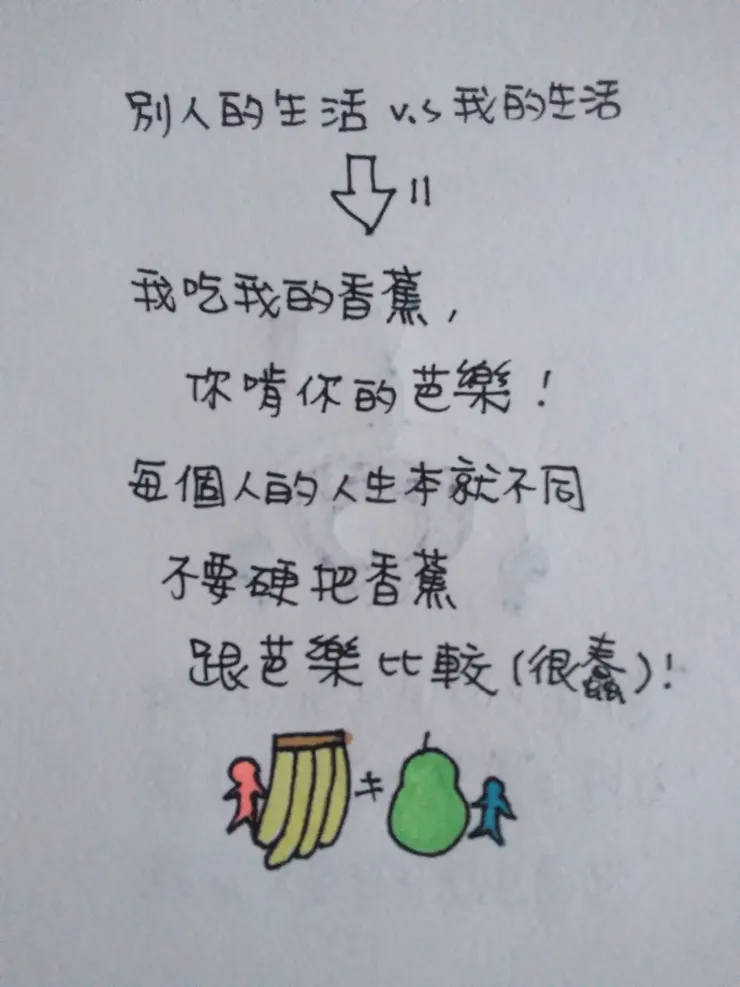 別人的生活 v.s 我的生活
我吃我的香蕉,
你啃你的芭樂!
每個人的人生本就不同
不要硬把香蕉
跟芭樂比較(很蠢)!
≠